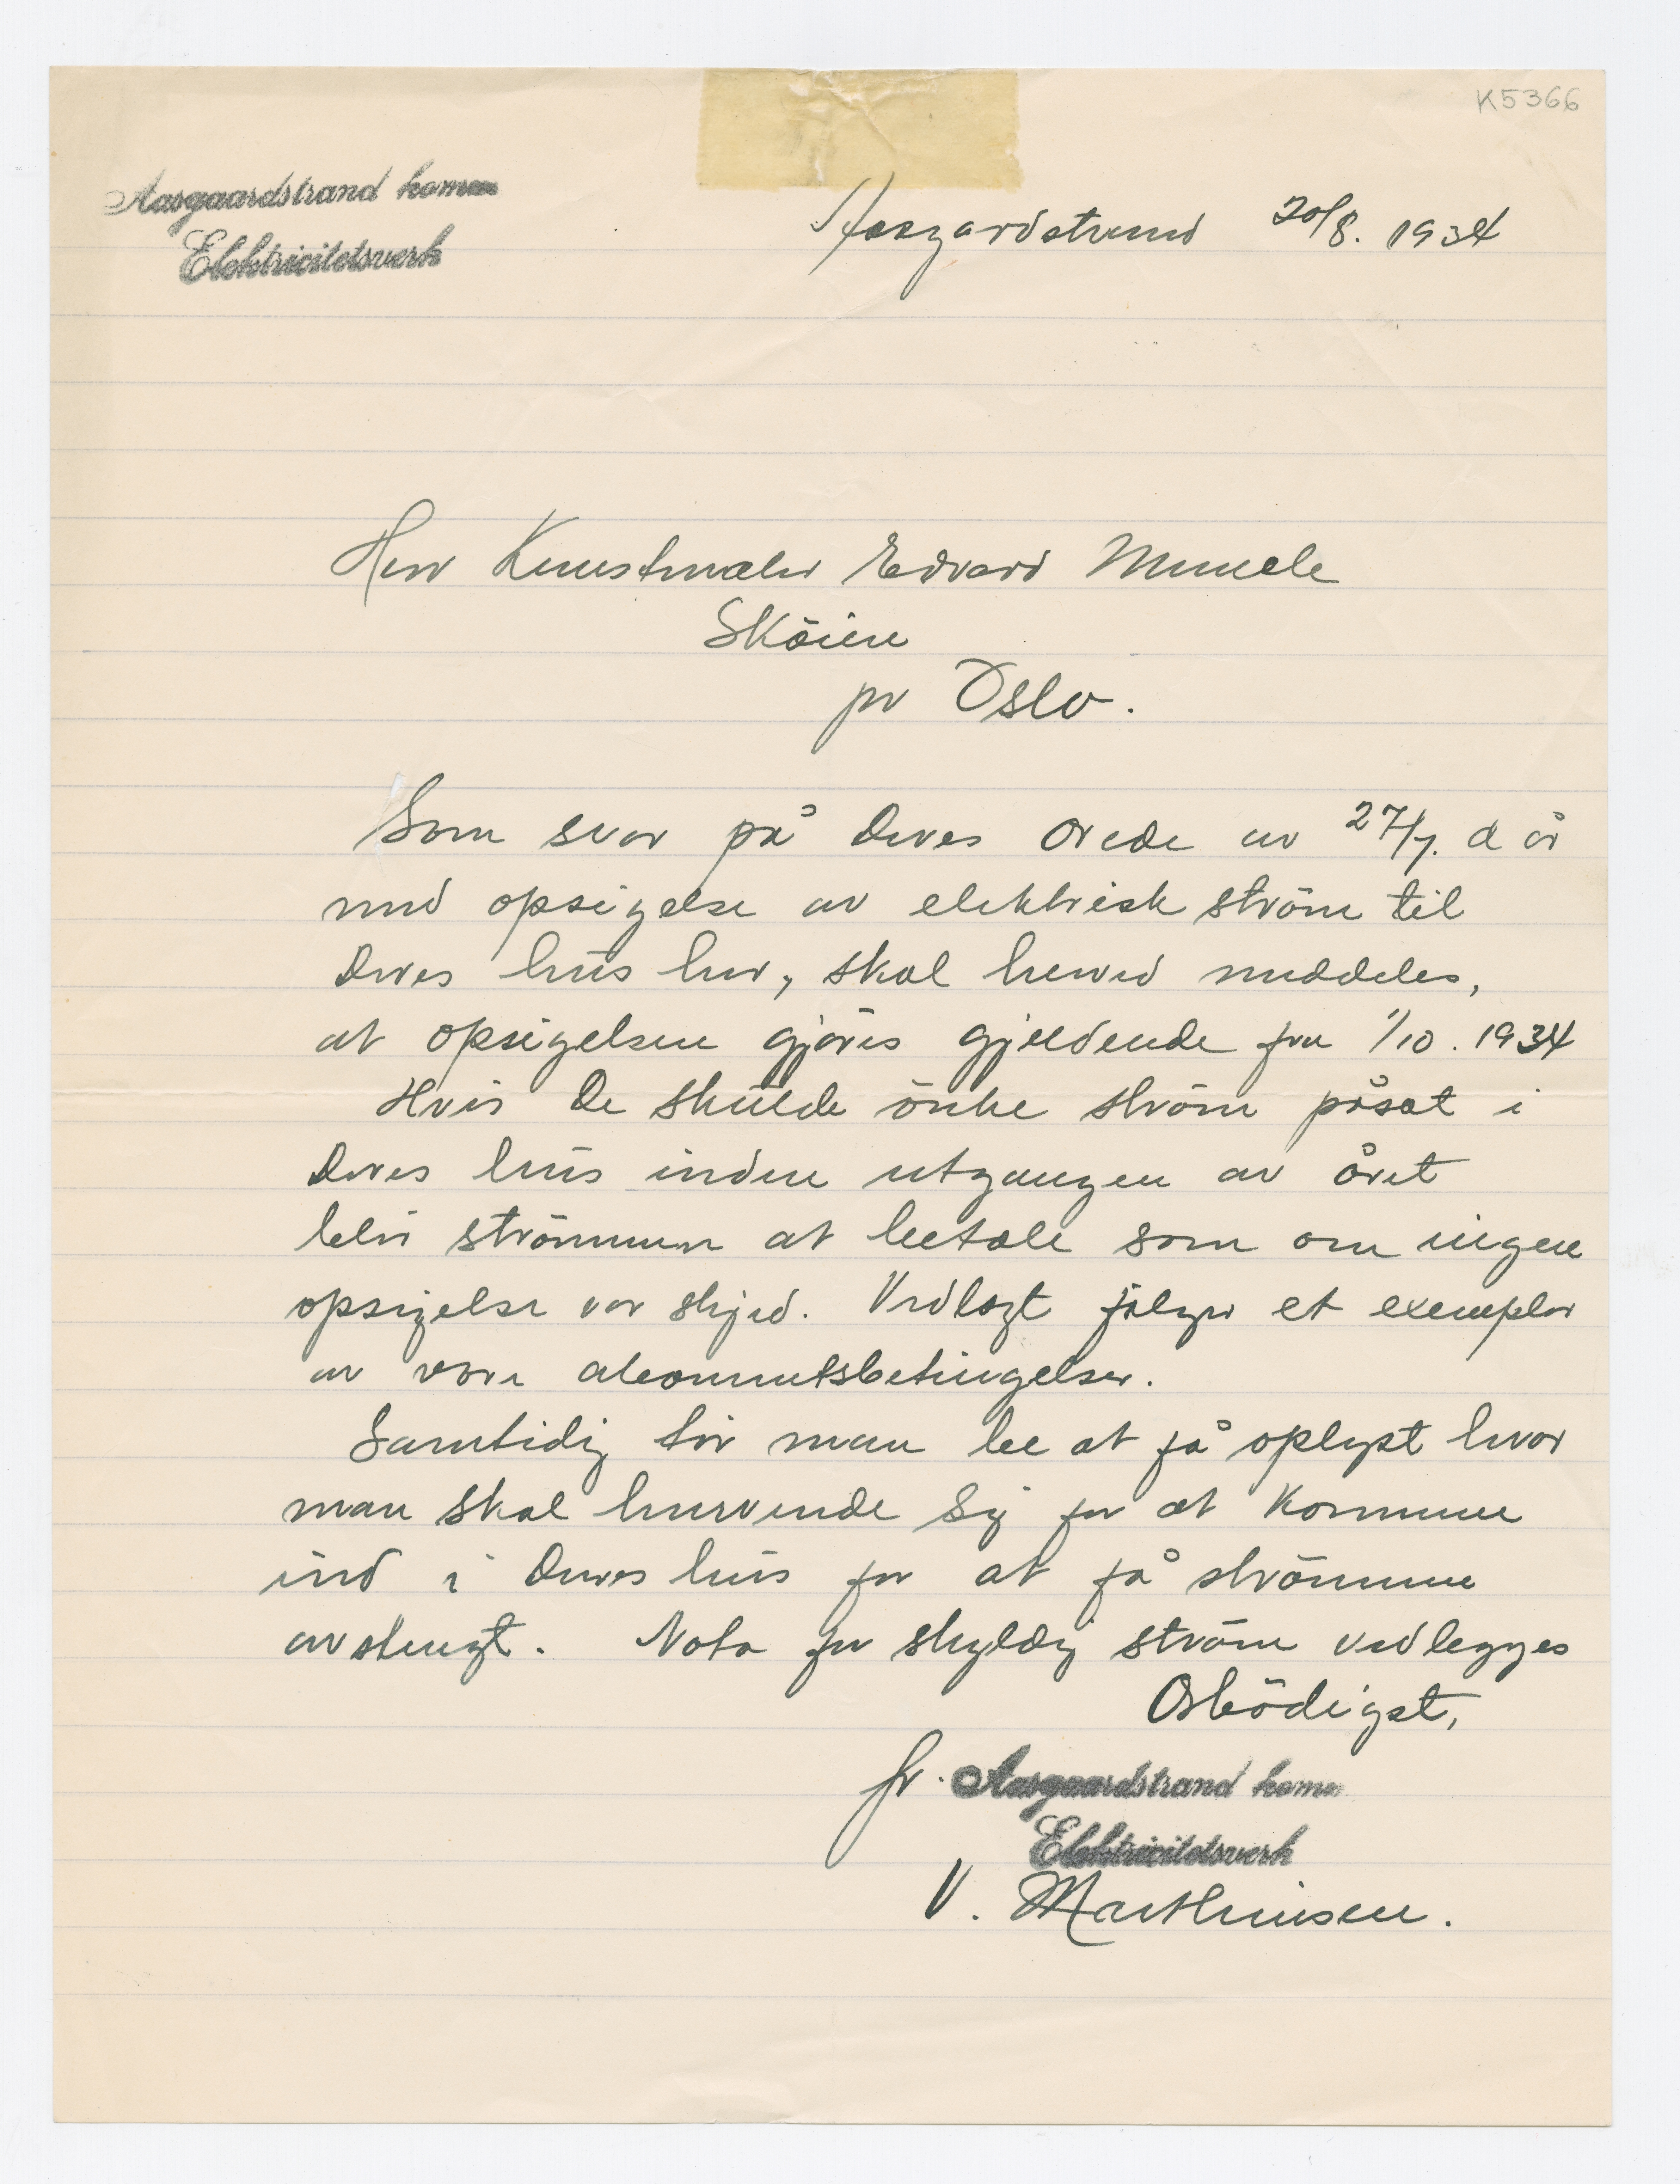 K5366
Aasgaardstrand komm
Elektricitetsverk
Aasgardstrand 20/8. 1934
Herr Kunstmaler Edvard Munch
Sköien
pr Oslo.
Som svar på Deres ærede av 27/7. d år
med opsigelse av elektrisk ström til
Deres hus her, skal herved meddeles,
at opsigelsen gjöres gjeldende fra 1/10. 1934
Hvis De skulde önke ström påsat i
Deres hus inden utgangen av året
blir strömmen at betale som om ingen
opsigelse var skjed. Vedlagt fölger et exemplar
av våre abonnentsbetingelser.
Samtidig tör man be at få oplyst hvor
man skal henvende sig for at komme
ind i Deres hus for at få strömmen
avstengt. Nota for skyldig ström vedlegges
Ærbödigst,
fr. Aasgaardstrand komm
Elektricitetsverk
V. Marthinsen.